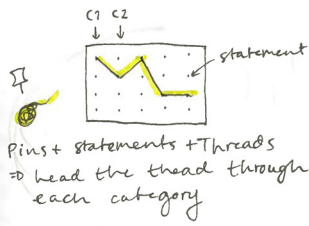 C1 C2
statement
Pins + statements + Threads
=D head the thead through
each category